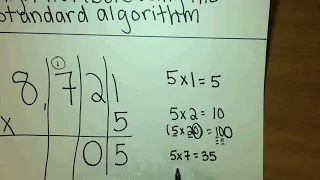 standard algorithm
1
8,721
x 5
05
5x1=5
5x2=10
(5x20)=100
5x7=35